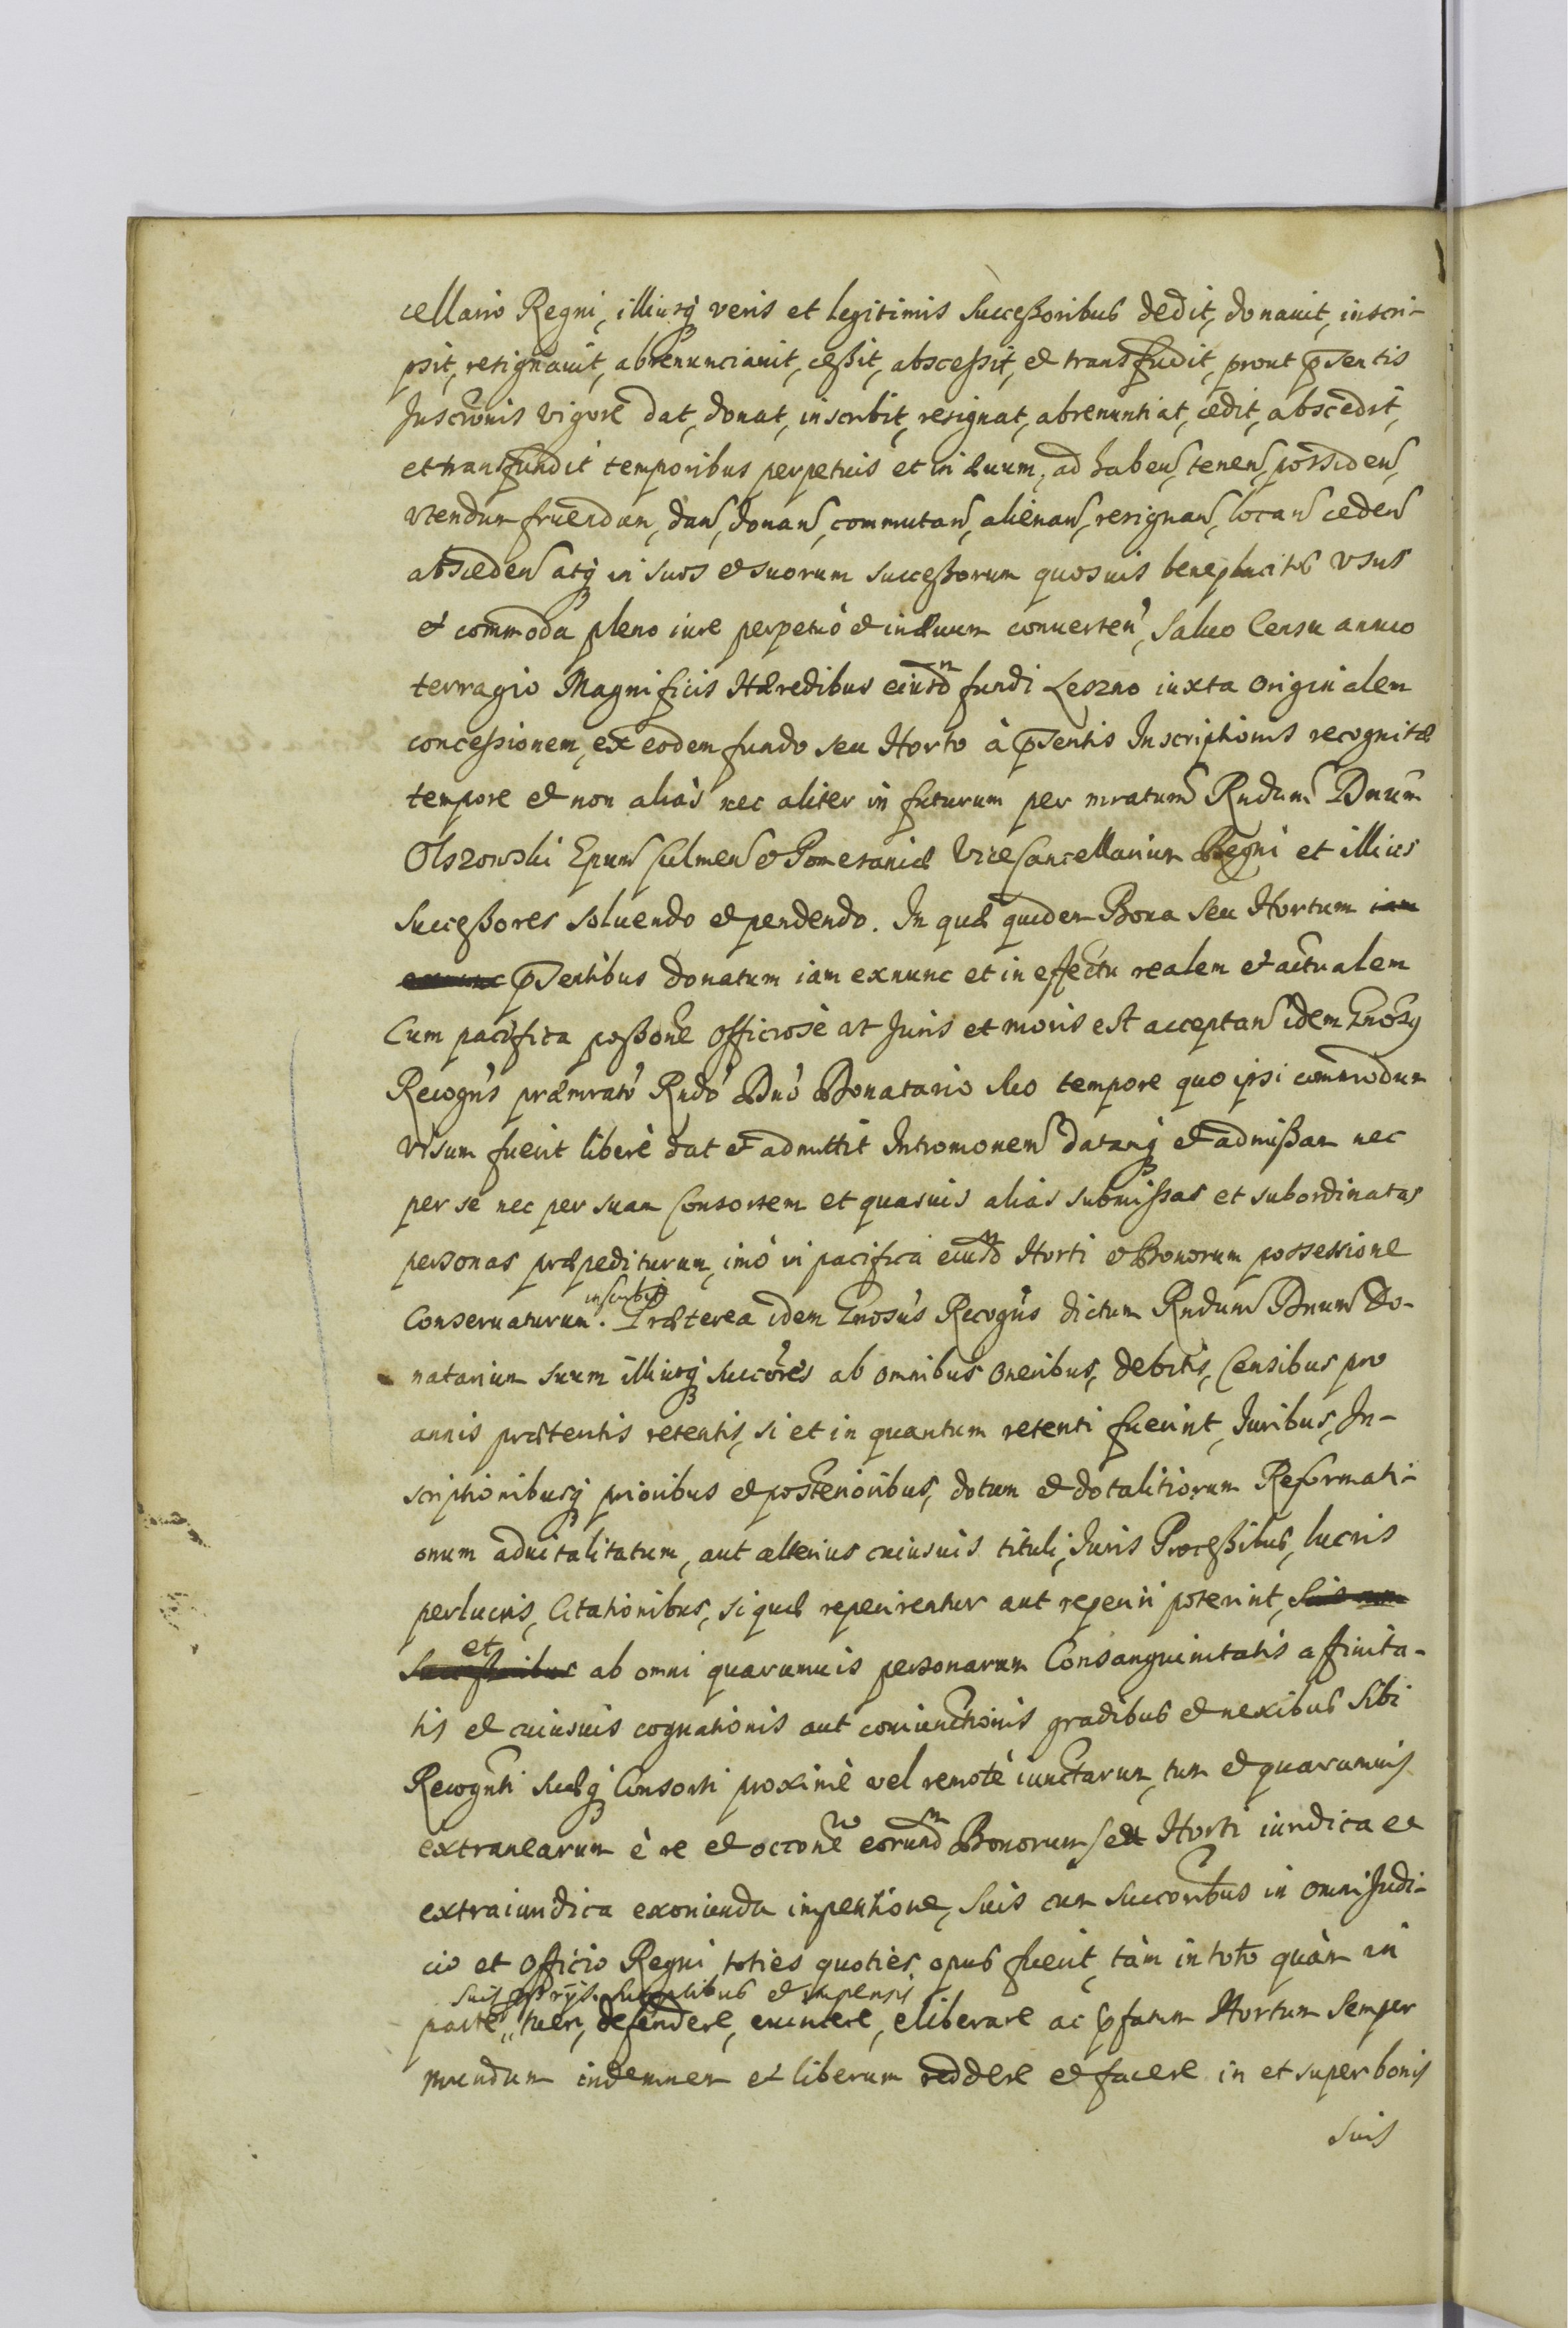 cellario Regni, illiusq veris et legitimis Successoribus dedit, donauit, inscri-
psit, resignauit, abrenunciauit, cessit, abscessit, et transfudit, prout pñsentis
Inscrõnis vigore dat, donat, inscribit, resignat, abrenuntiat, cedit, abscedit,
et transfundit temporibus perpetuis et in æuum, ad haben̄, tenen̄, possiden̄,
vtendum fruendum, dan̄, donan̄, commutan̄, alienan̄, resignan̄, locan̄ ceden̄
absceden̄ atq in suos et suorum successorum quosuis beneplacitos vsus
et commoda pleno iure perpetuò et in æuum conuerten̄, Saluo Censu annuo
terragio Magnificis Hæredibus eiusdm fundi Leszno iuxta originalem
concessionem, ex eodem fundo seu Horto à pñsentis Inscriptionis recognitæ
tempore et non aliàs nec aliter in futurum per mratum Rndum Dnum
Olszowski Epum Culmen̄ et Pomesaniæ ViceCancellarium Regni et illius
Successores soluendo et pendendo. In quæ quidem Bona seu Hortum iam
exnunc pñsentibus donatum iam exnunc et in effectu realem et actualem
Cum pacifica possone officiosè vt Juris et moris est acceptan̄ idem Gnosus
Recogñs præmratò Rndò Dnò Donatario suo tempore quo ipsi commodum
visum fuerit liberè dat et admittit Intromonem datamq et admissam nec
per se nec per suam Consortem et quasuis aliàs submissas et subordinatas
personas præpediturum, imò in pacifica eiusdm Horti et Bonorum possessione
Conseruaturum inscribit. Præterea idem Gnosus Recogñs dictum Rndum Dnum Do-
natarium suum illiusq succores ab omnibus oneribus, debitis, Censibus pro
annis præteritis retentis, si et in quantum retenti fuerint, Iuribus, In-
scriptionibusq prioribus et posterioribus, dotum et dotalitiorum Reformati-
onum aduitalitatum, aut alterius cuiusuis tituli, Iuris Processibus, lucris
perlucris, Citationibus, si quæ reperirentur aut reperiri poterint, suis cum
Successoribus et ab omni quarumuis personarum Consanguinitatis affinita-
tis et cuiusuis cognationis aut coniunctionis gradibus et nexibus sibi
Recognti suæq Consorti proximè vel remotè iunctarum, tum et quarumuis
extranearum è re et occone eorundm Bonorum seu Horti iuridica et
extraiuridica exoriunda impentione, suis cum succoribus in omni Judi-
cio et officio Regni, toties quoties opus fuerit, tàm in toto quàm in
suis pprijs. sumptibus et impensis
parte, tueri, defendere, euincere, eliberare ac pfatum Hortum semper
mundum indemnem et liberum reddere et facere in et super bonis
suis